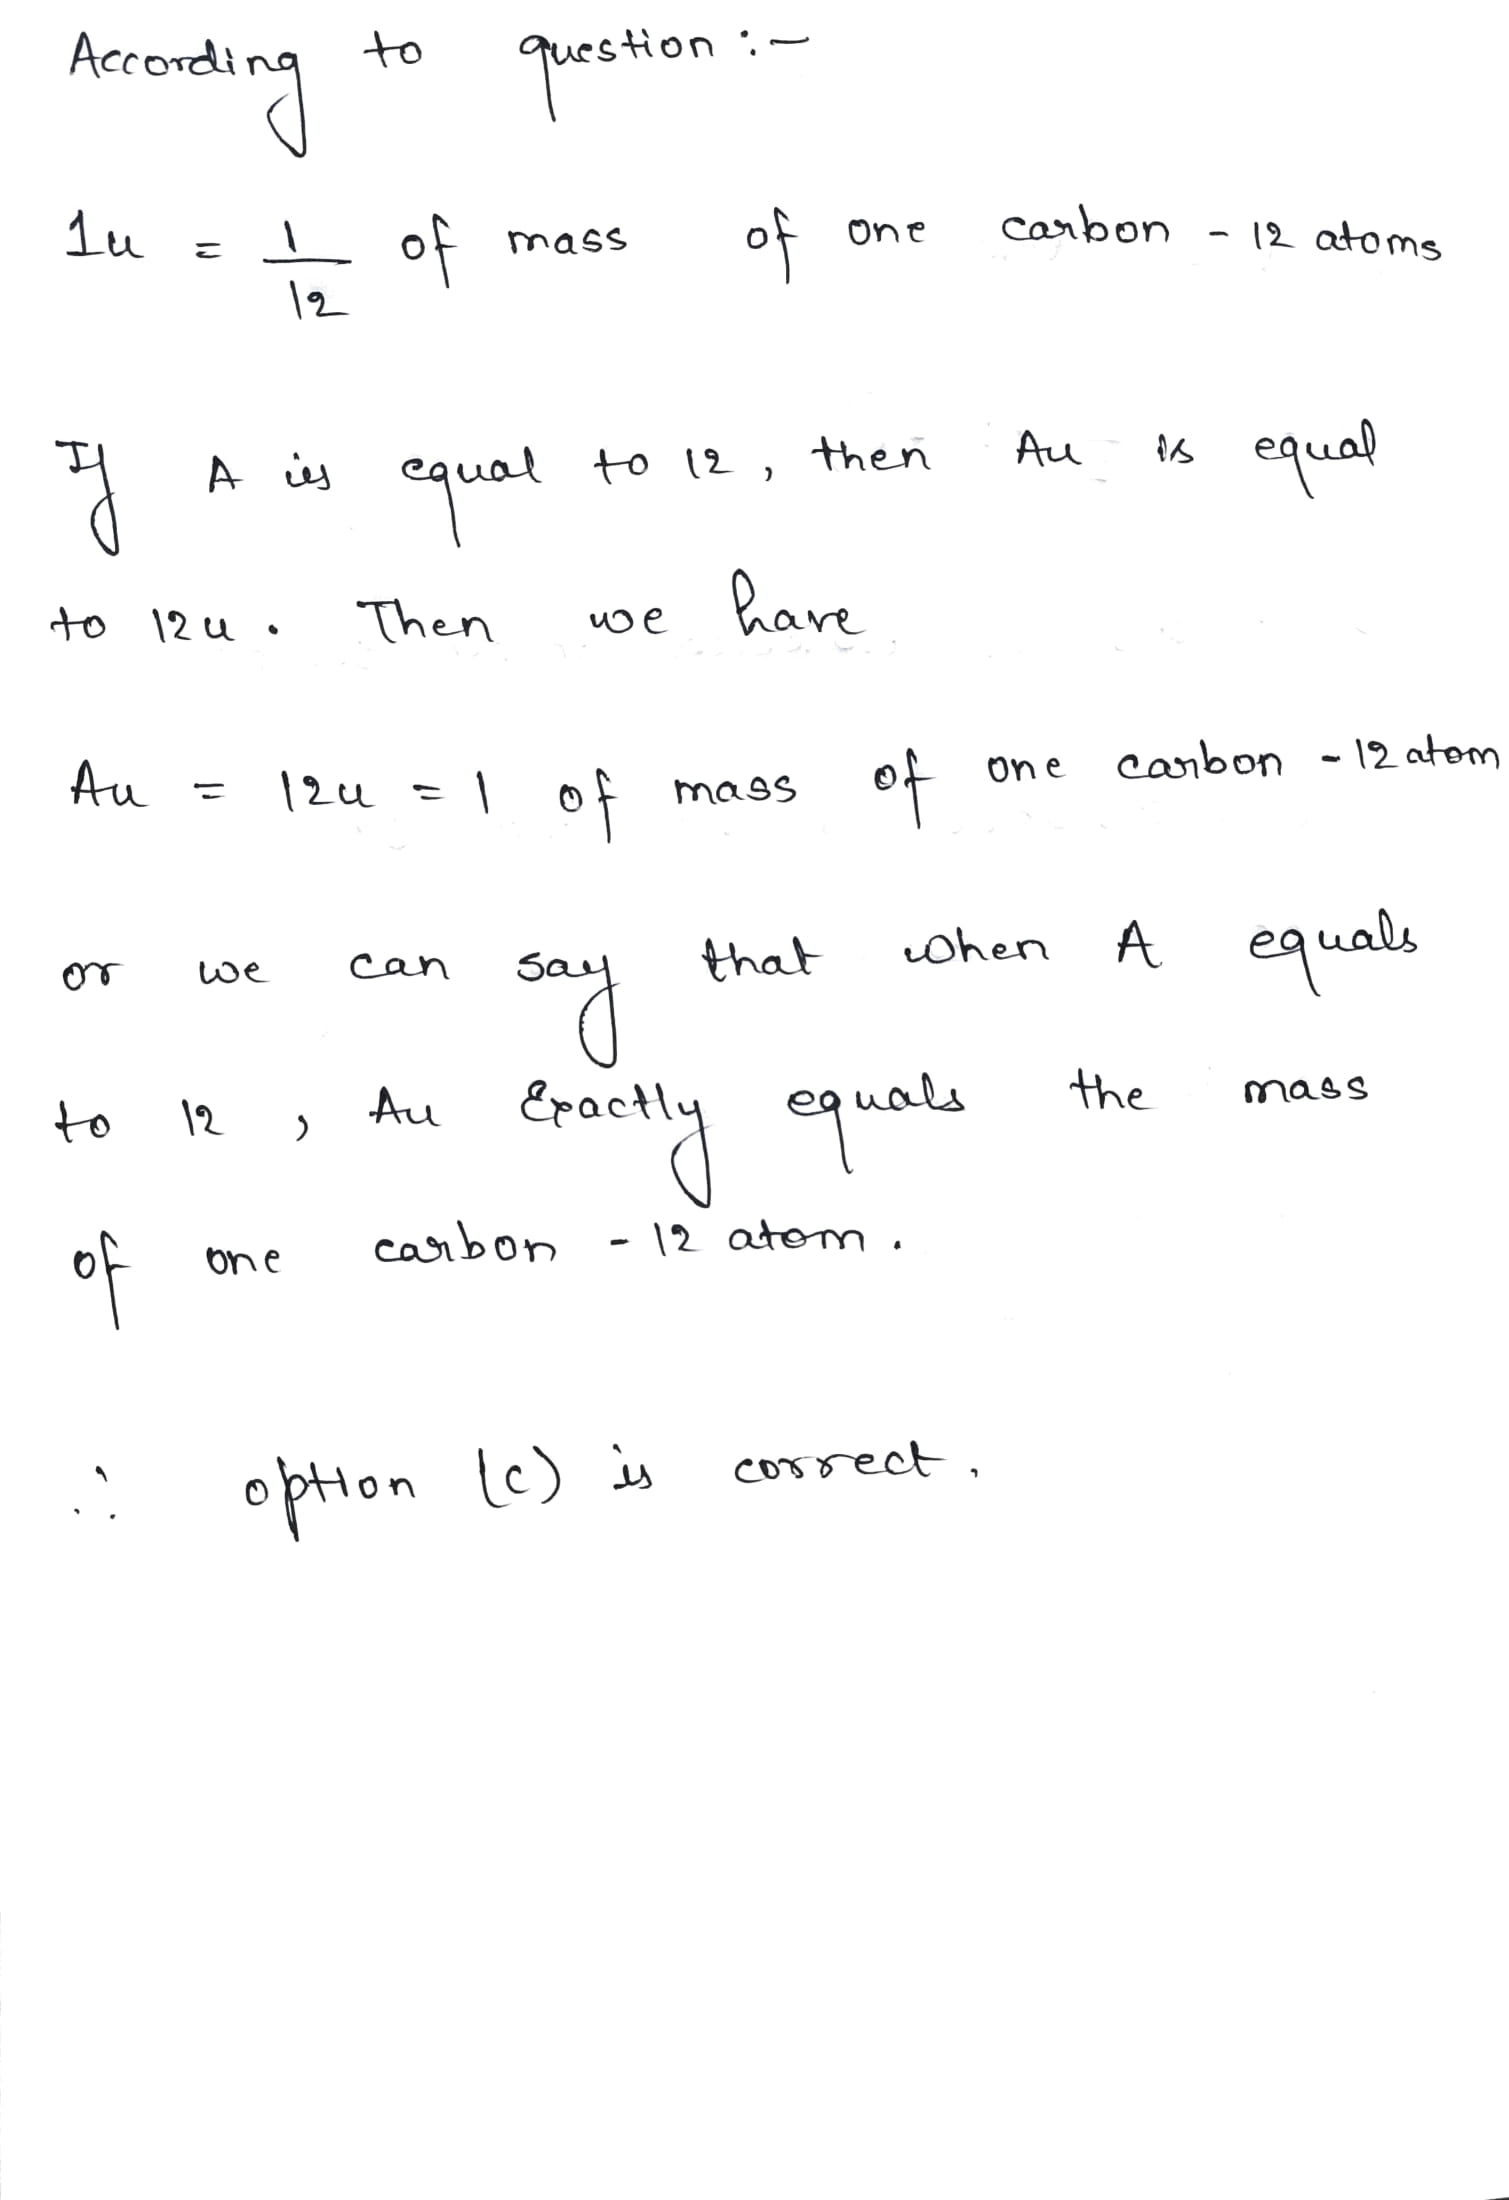 According to question :-
1u = 1/12 of mass of one carbon - 12 atoms
If A is equal to 12, then Au is equal
to 12u. Then we have
Au = 12u = 1 of mass of one carbon - 12 atom
or we can say that when A equals
to 12, Au Exactly equals the mass
of one carbon - 12 atom.
∴ option (c) is correct.